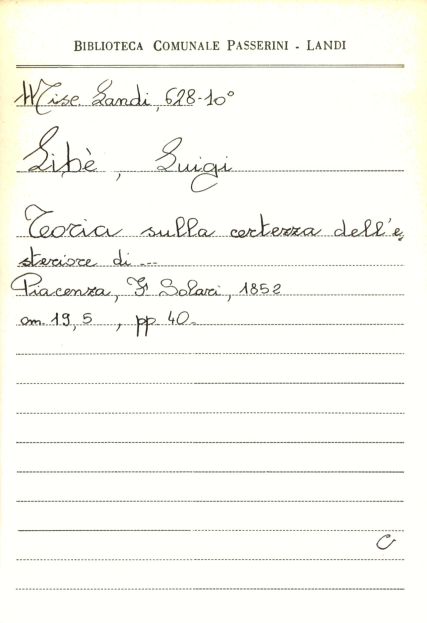 BIBLIOTECA COMUNALE PASSERINI - LANDI
Misc. Landi, 628-10°
Libè, Luigi
Teoria sulla certezza dell'e
steriore di ...
Piacenza, F. Solari, 1852
cm. 19,5, pp. 40.
C